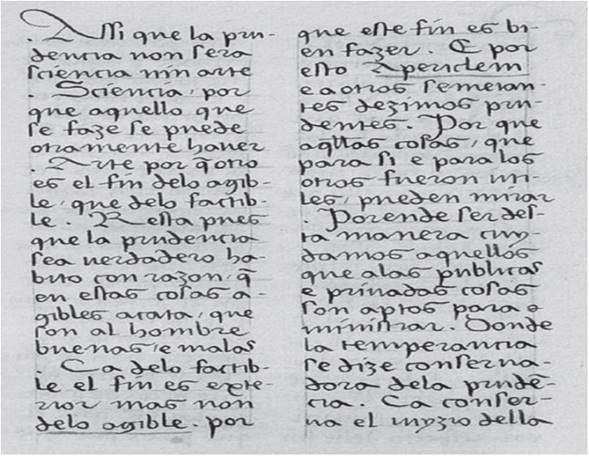 . Assi que la pru-
dencia non sera
sciencia nin arte
. Sciencia, por
que aquello que
se faze se puede
otramente hauer
. Arte por q̃ otro
es el fin delo agib-
le, que delo factib-
le. Resta pues
que la prudencia
sea uerdadero ha-
buto con razon, q̃
en estas cosas a-
gibles acata, que
son al hombre
buenas, e malas
. Ca delo factib-
le el fin es exte-
rior mas non
delo agible. por
que este fin es bi-
en fazer. E por
esto Apericlem
e a otros semeian-
tes dezimos pru-
dentes. Por que
aq̃llas cosas, que
para si e para los
otros fueron uti-
les, pueden mirar
. Porende ser des-
ta manera cuy-
damos aquellos
que alas publicas
e priuadas cosas
son aptos para
ministrar. Donde
la temperancia
se dize conserua-
dora dela prudẽ-
cia. Ca conser-
ua el juyzio della